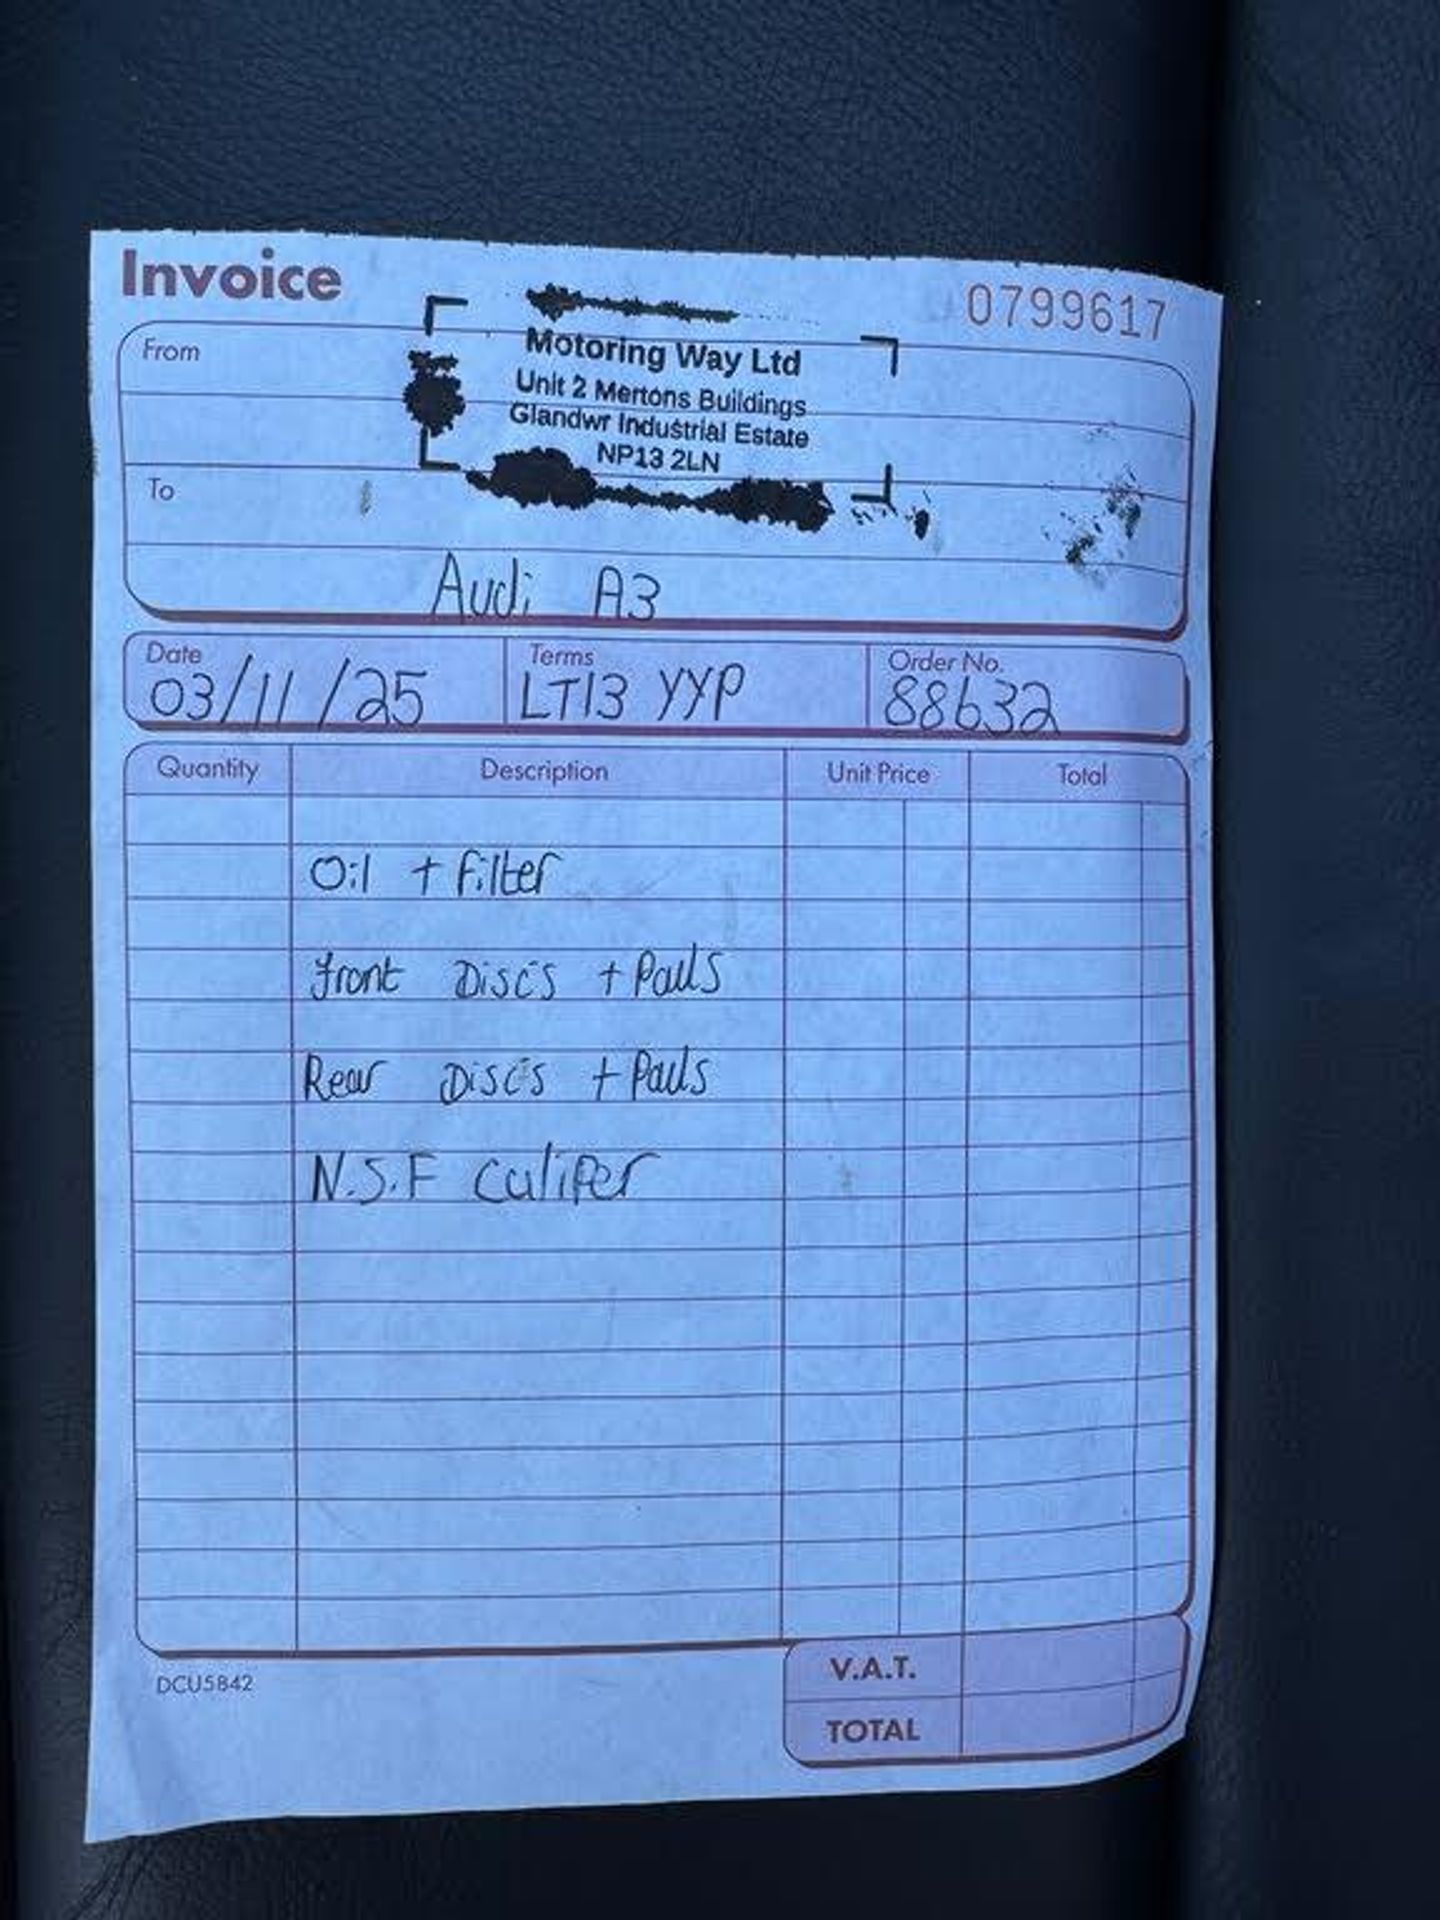 Invoice
0799617
From
Motoring Way Ltd
Unit 2 Mertons Buildings
Glandwr Industrial Estate
NP13 2LN
To
Audi A3
Date
03/11/25
Terms
LT13 YYP
Order No.
88632
Quantity Description Unit Price Total
Oil + Filter
Front Discs + Pads
Rear Discs + Pads
N.S.F Caliper
V.A.T.
TOTAL
DCU5842